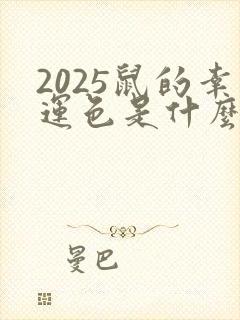 2025鼠的幸
運色是什麼
曼巴